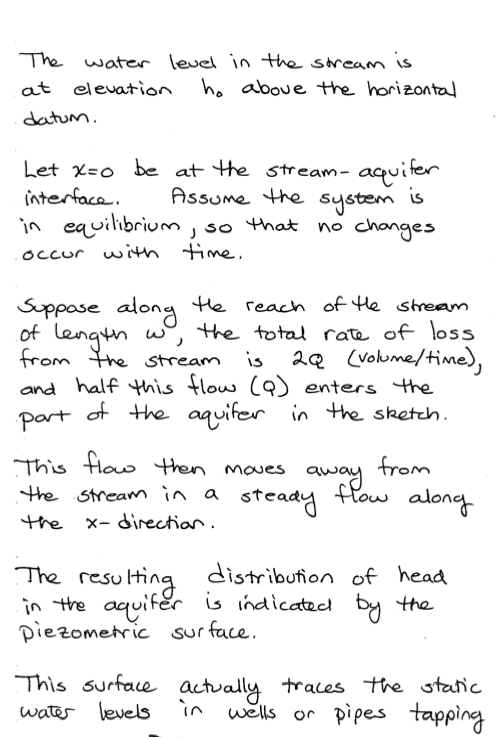 The water level in the stream is
at elevation h₀ above the horizontal
datum.
Let x=0 be at the stream-aquifer
interface. Assume the system is
in equilibrium, so that no changes
occur with time.
Suppose along the reach of the stream
of length w, the total rate of loss
from the stream is 2Q (volume/time),
and half this flow (Q) enters the
part of the aquifer in the sketch.
This flow then moves away from
the stream in a steady flow along
the x-direction.
The resulting distribution of head
in the aquifer is indicated by the
piezometric surface.
This surface actually traces the static
water levels in wells or pipes tapping